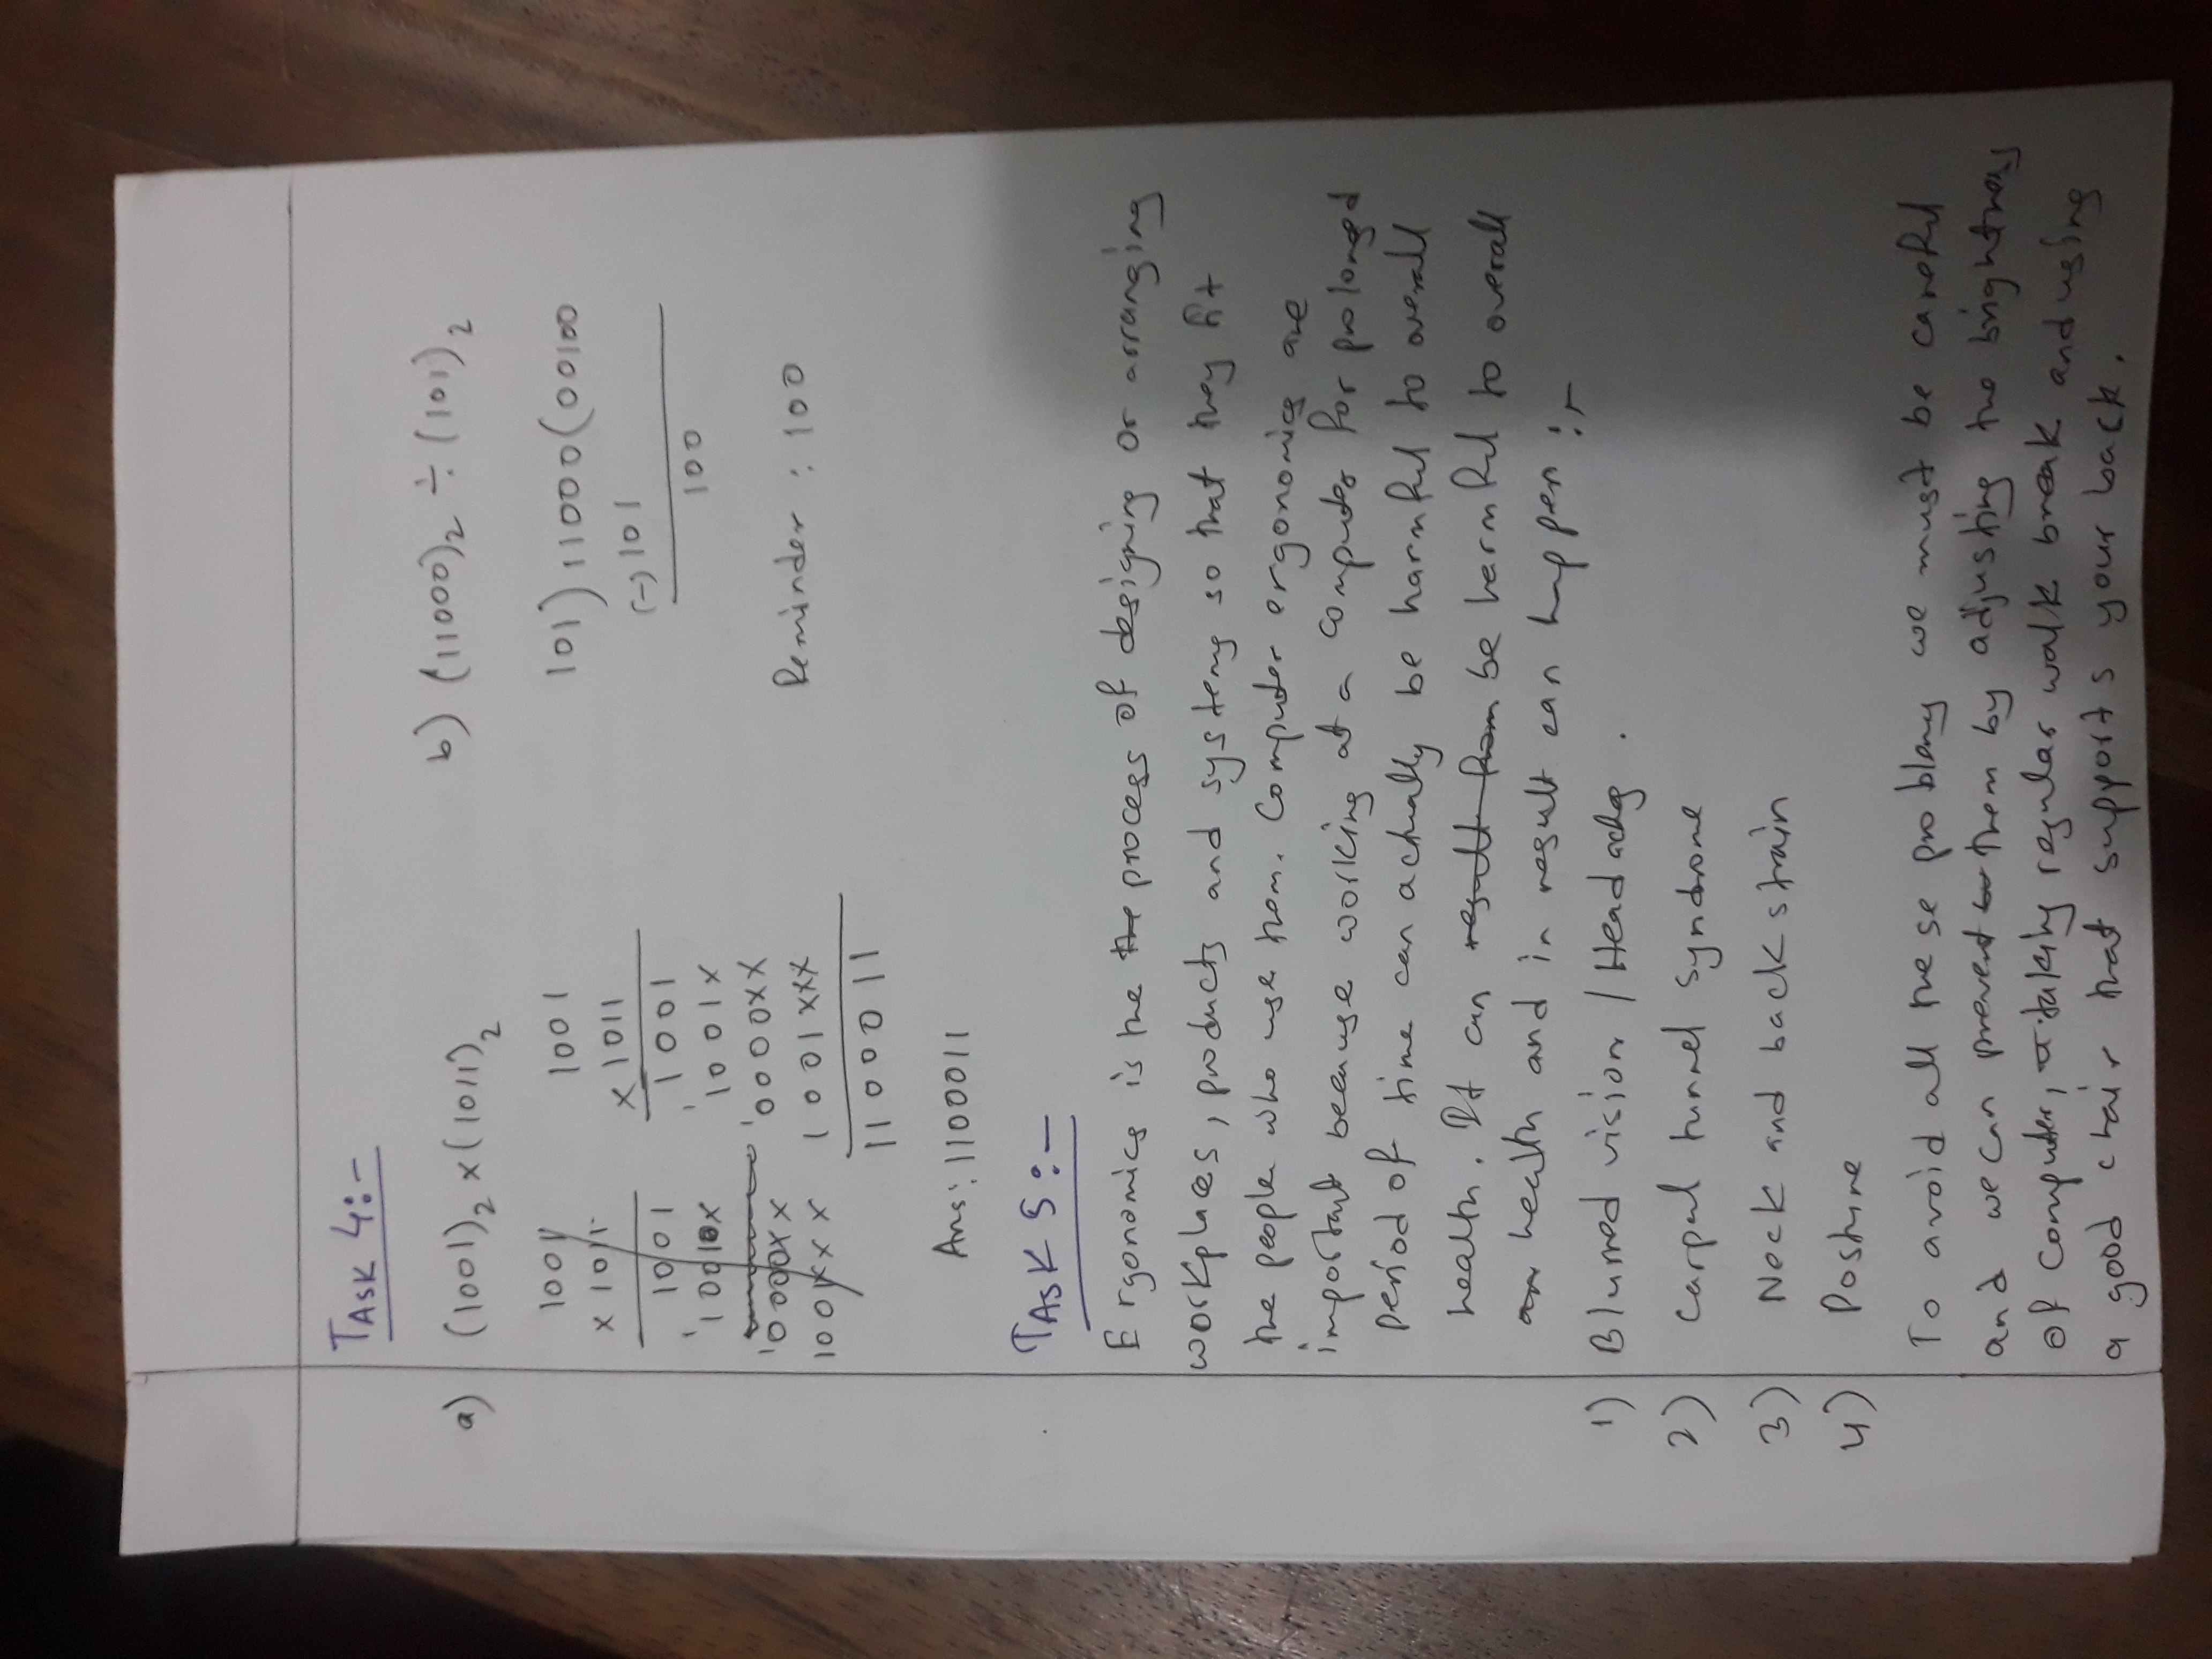 TASK 4:-
a) (1001)₂ x (1011)₂
1001
x 1011
1001
10010x
0000xx
1001xxx
1001
x 1011
1001
1001x
0000xx
1001xxx
1100011
Ans: 1100011
b) (11000)₂ ÷ (101)₂
101) 11000 (00100
(-) 101
100
Reminder : 100
TASK 5:-
Ergonomics is the the process of designing or arranging
workplaces, products and systems so that they fit
the people who use them. Computer ergonomics are
important because working at a computer for prolonged
period of time can actually be harmful to overall
health. It can result from be harmful to overall
an health and in result can happen :-
1) Blurred vision / Headaches .
2) Carpal tunnel syndrome
3) Neck and back strain
4) Posture
To avoid all these problems we must be careful
and we can prevent them by adjusting the brightness
of computer, taking regular walk break and using
a good chair that supports your back.